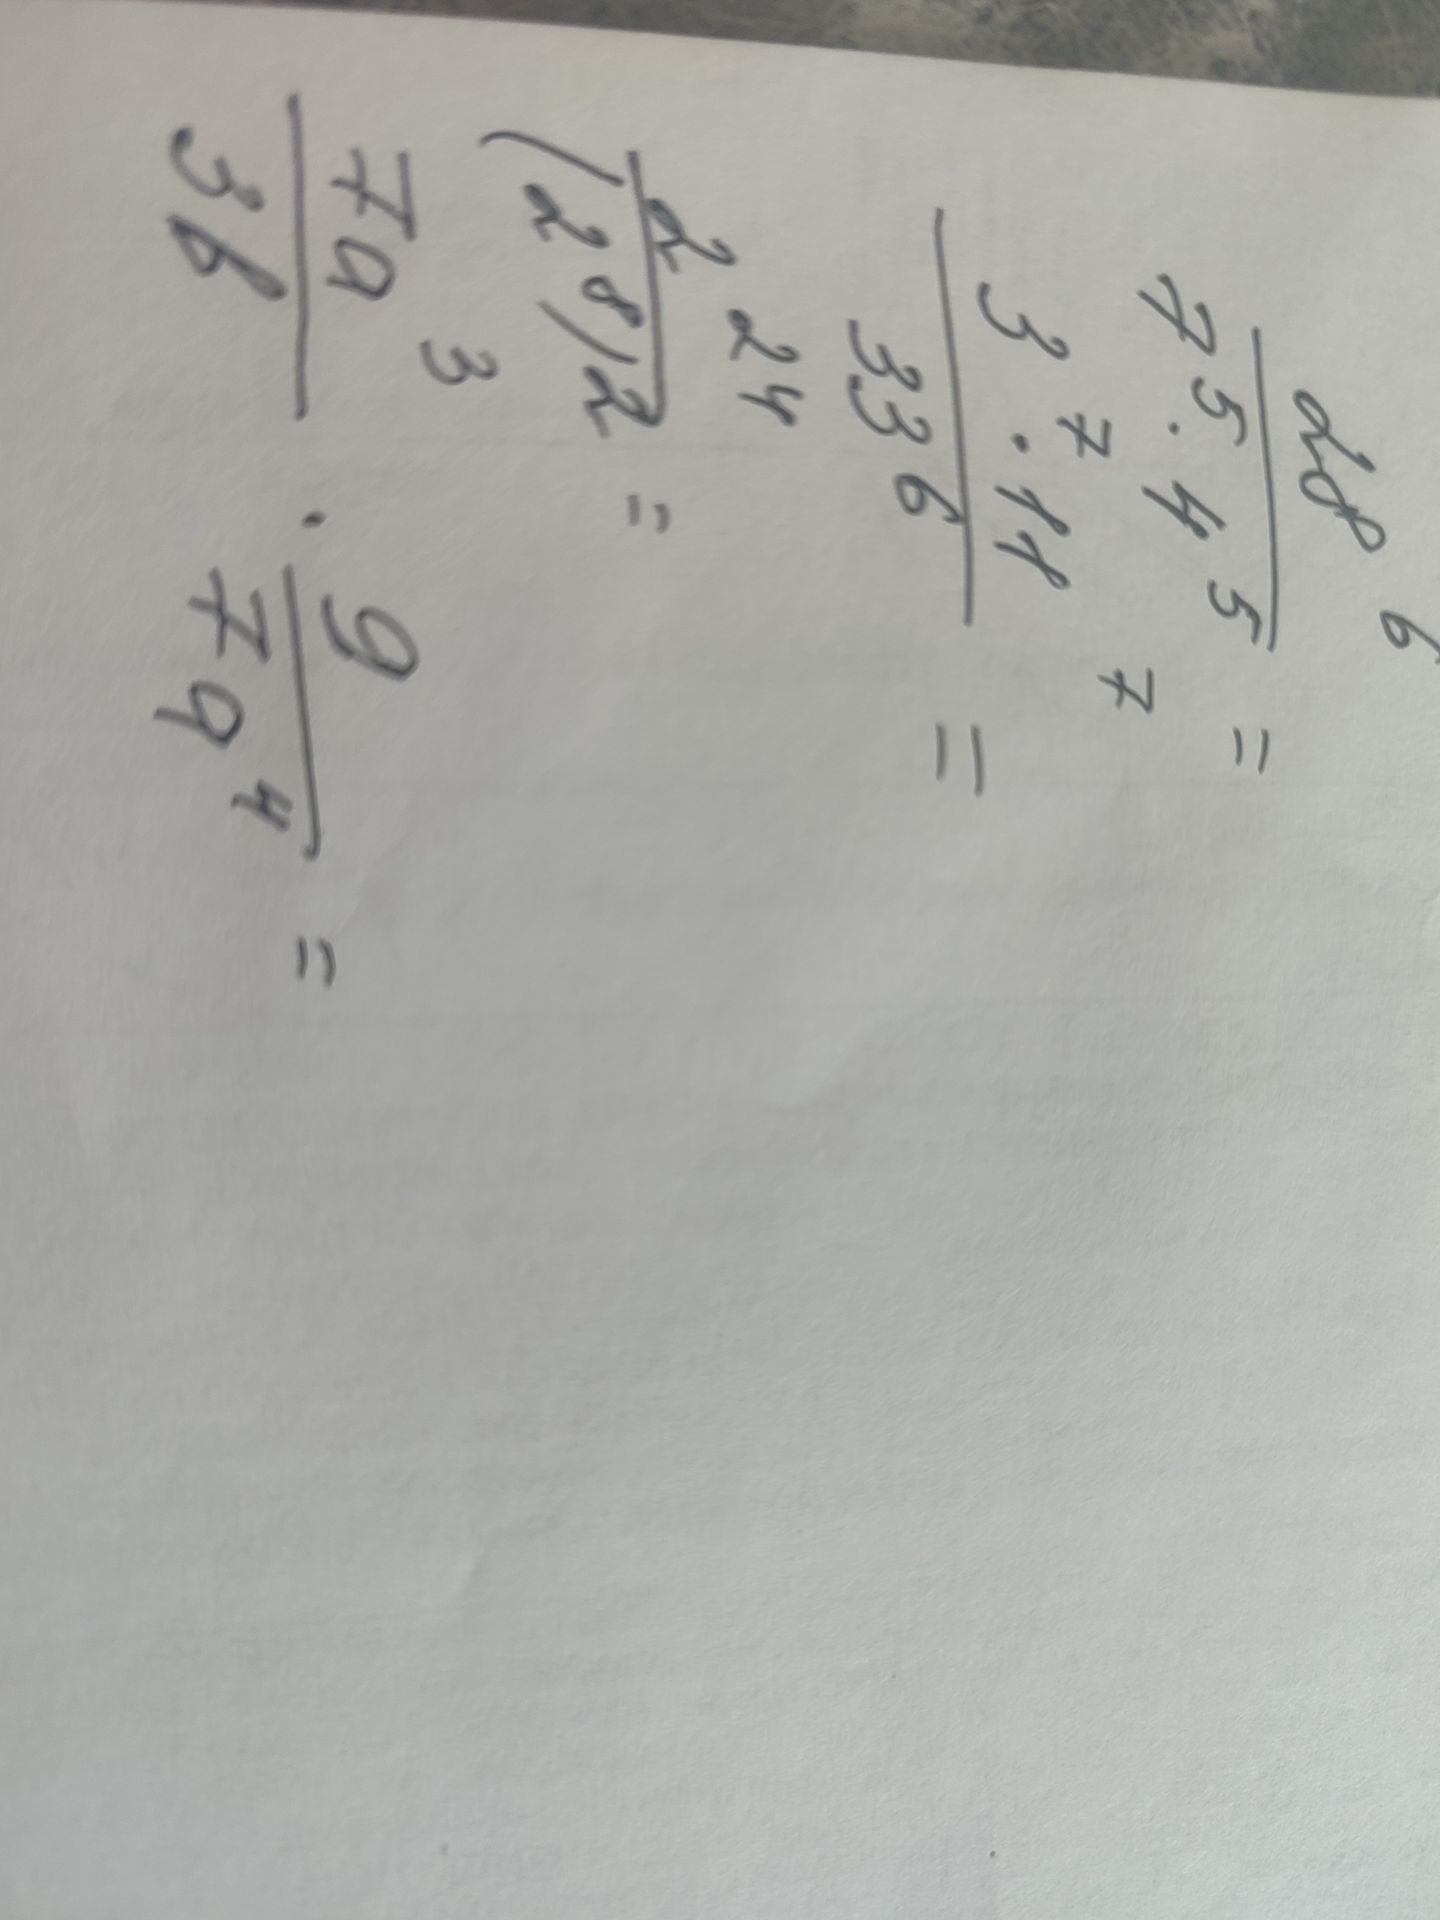 28⁶
7⁵ · 4⁵ =
3⁷ · 11⁷
33⁶ =
2²⁴
(2⁸)² =
7a³ / 3b · 9 / 7a⁴ =